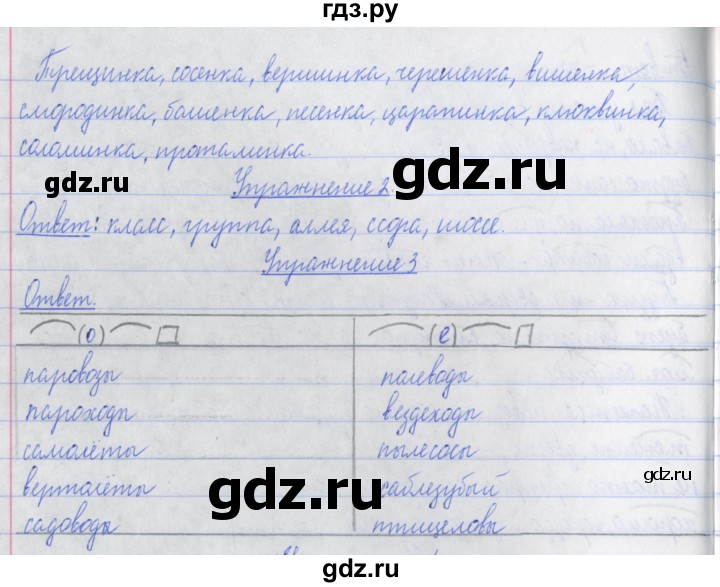 гдз.ру
Трещинка, сосенка, вершинка, черешенка, вишенка,
смородинка, башенка, песенка, царапинка, клюквинка,
соломинка, проталинка.
gdz.ru
gdz.ru
Упражнение 2
Ответ: класс, группа, аллея, ссора, шоссе.
Упражнение 3
Ответ.
(о) (е)
паровозы полеводы
пароходы вездеходы
самолёты пылесосы
gdz.ru
вертолёты саблезубый
gdz.ru
садоводы птицеловы
gdz.ru